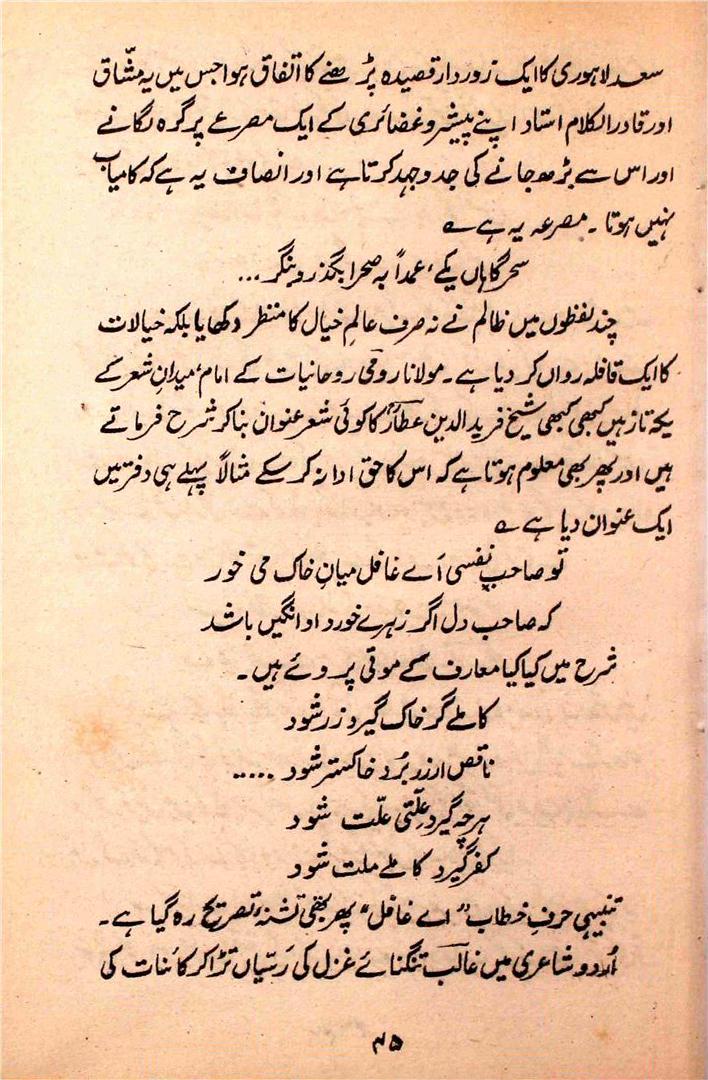 سعد لاہوری کا ایک زوردار قصیدہ پڑھنے کا اتفاق ہوا جس میں یہ مشّاق
اور قادرالکلام استاد اپنے پیشرو غضائری کے ایک مصرعے پر گرہ لگانے
اور اس سے بڑھ جانے کی جدوجہد کرتا ہے اور انصاف یہ ہے کہ کامیاب
نہیں ہوتا ۔ مصرعہ یہ ہے ؎
سحر گاہاں یکے، عمداً بہ صحرا بگذر و بنگر ...
چند لفظوں میں ظالم نے نہ صرف عالمِ خیال کا منظر دکھایا بلکہ خیالات
کا ایک قافلہ رواں کر دیا ہے ۔ مولانا رومی روحانیات کے امام، میدانِ شعر کے
یکہ تاز ہیں کبھی کبھی شیخ فرید الدین عطارؒ کا کوئی شعر عنوان بنا کر شرح فرماتے
ہیں اور پھر بھی معلوم ہوتا ہے کہ اس کا حق ادا نہ کر سکے مثالاً پہلے ہی دفتر میں
ایک عنوان دیا ہے ؎
تو صاحبِ نفسی اَے غافل میانِ خاک می خور
کہ صاحب دل اگر زہرے خورد او انگیں باشد
شرح میں کیا کیا معارف کے موتی پروئے ہیں ۔
کاملے گر خاک گیرد زر شود
ناقص ار زر بُرد خاکستر شود .....
ہرچہ گیرد عِلّتی علّت شود
کفر گیرد کاملے ملت شود
تنبیہی حرفِ خطاب "اے غافل" پھر بھی تشنۂ تصریح رہ گیا ہے ۔
اُردو شاعری میں غالب تنگنائے غزل کی رَسّیاں تڑا کر کائنات کی
۴۵